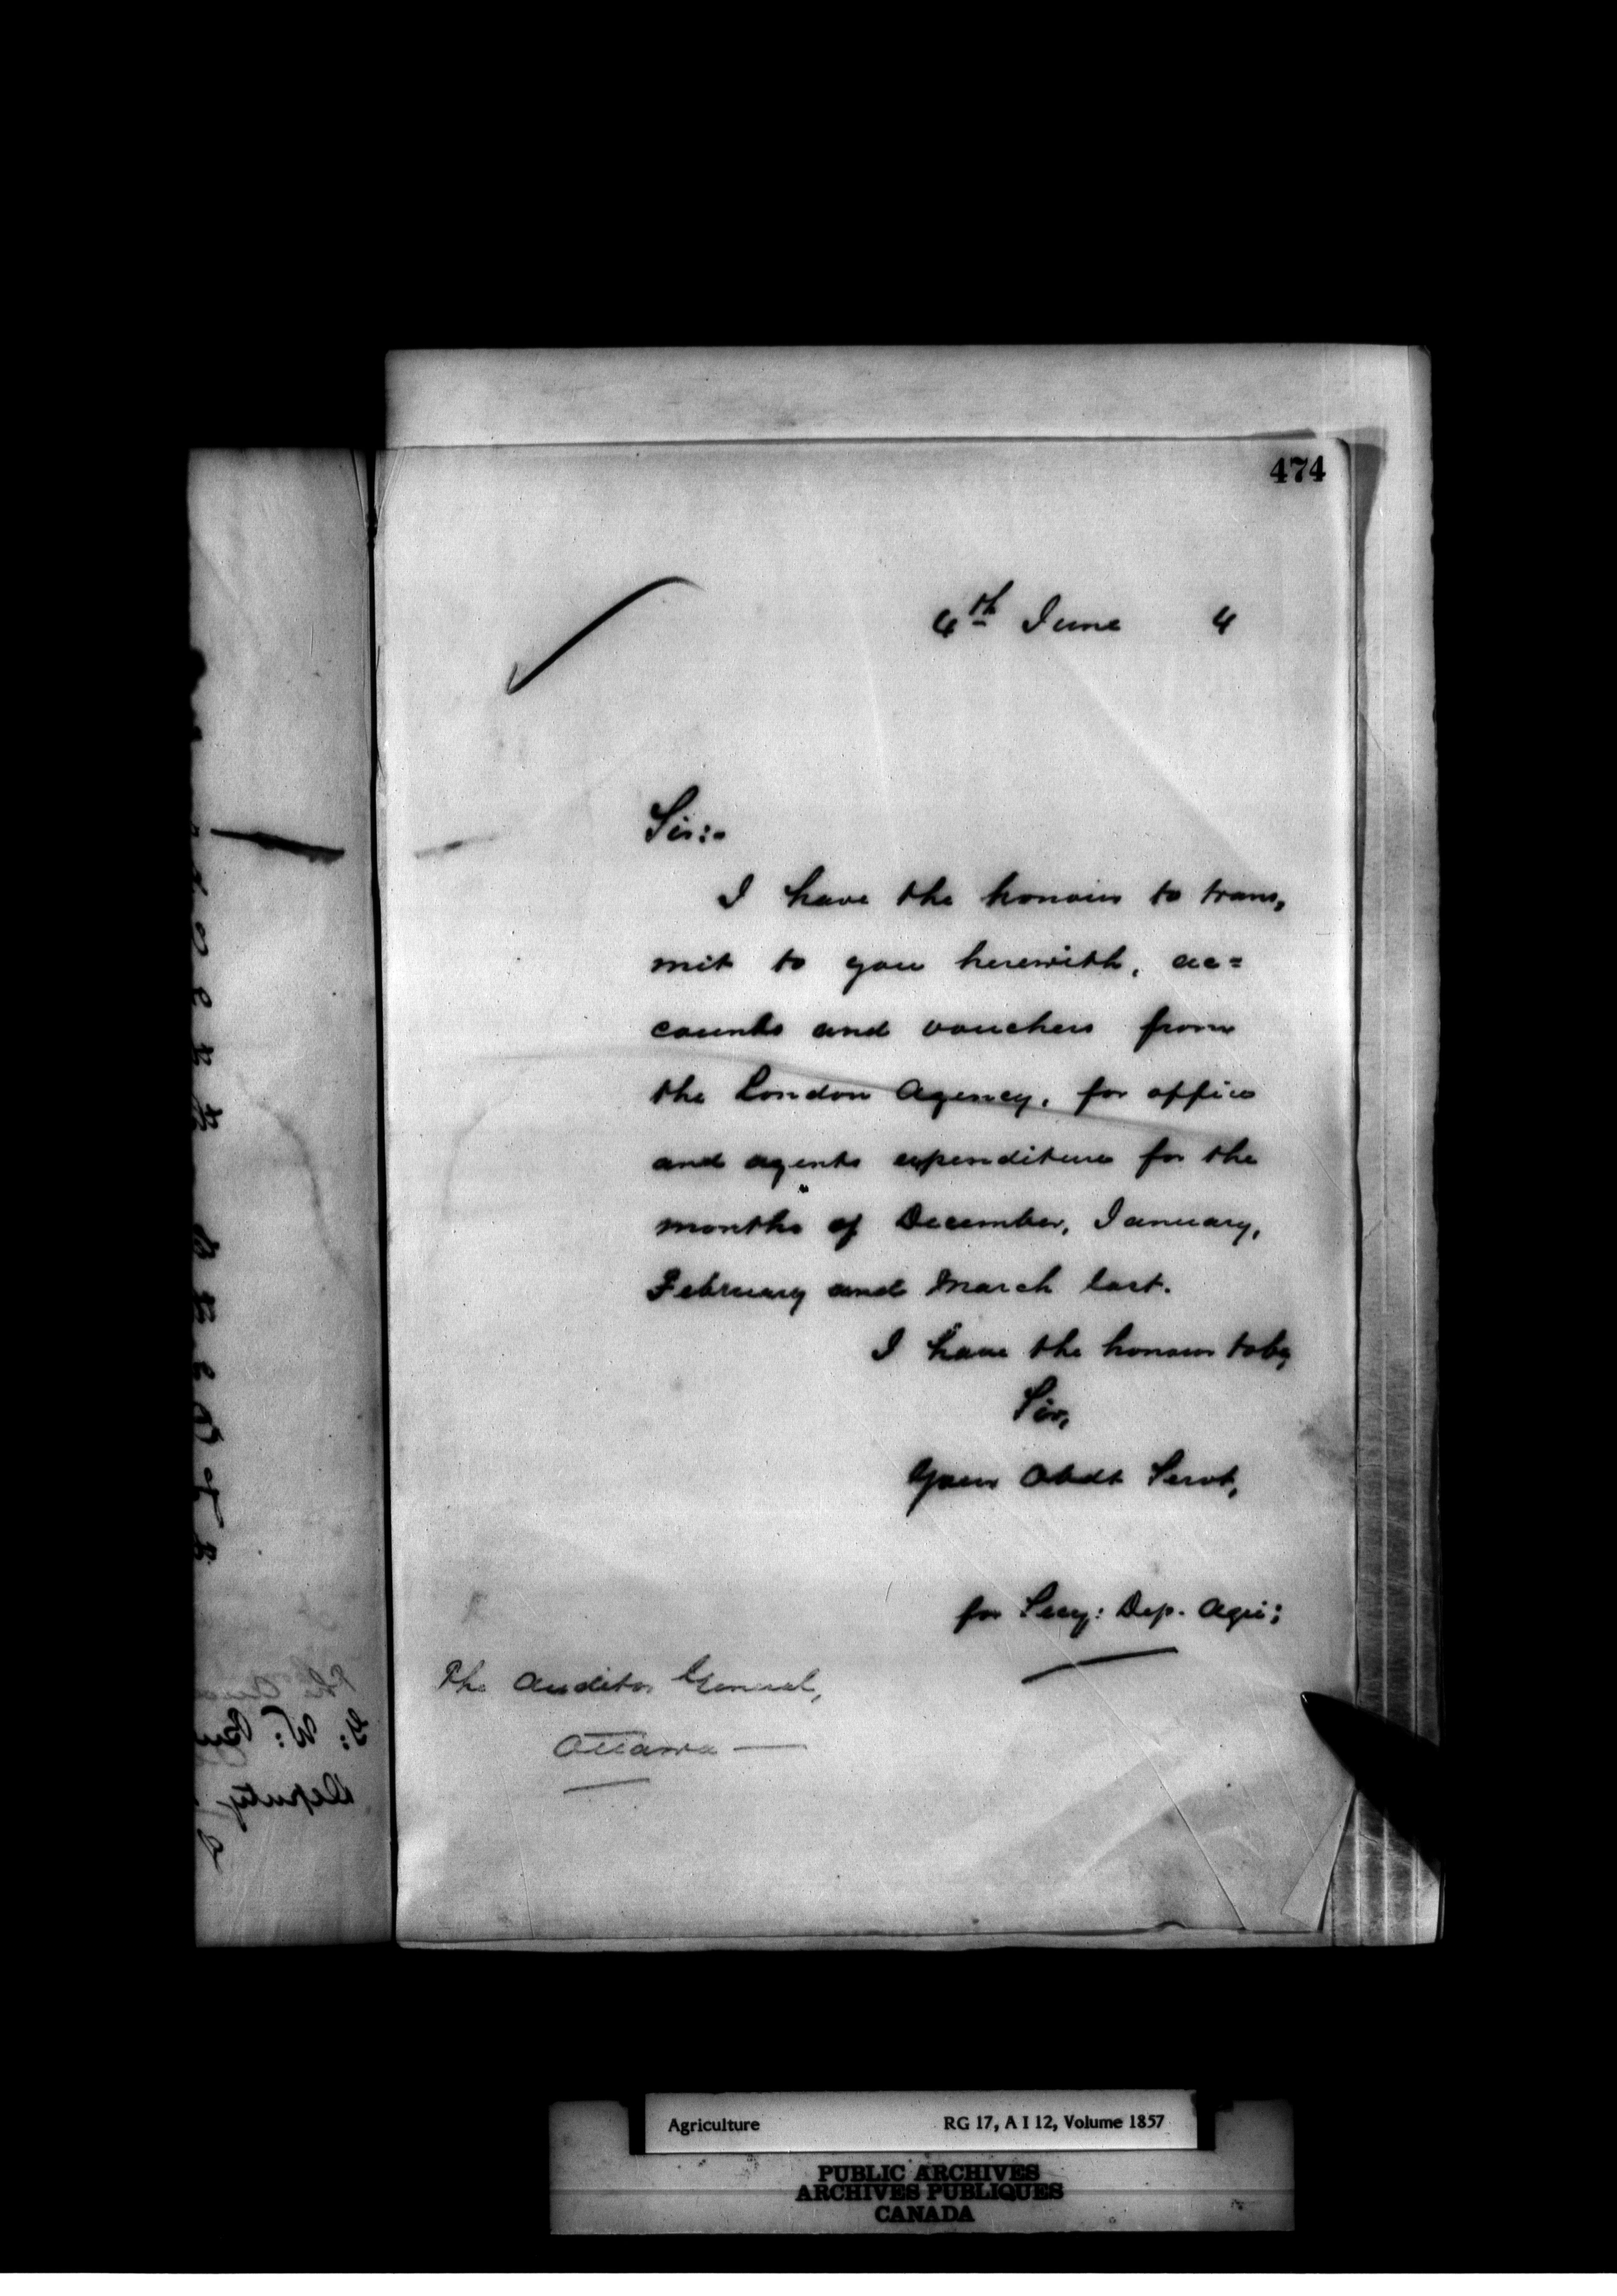 474
4th June 4
Sir:-
I have the honour to trans,
mit to you herewith, ac=
counts and vouchers from
the London Agency, for office
and agents expenditure for the
months of December, January,
February and March last.
I have the honour to be,
Sir,
Your Obdt Servt,
for Secy: Dep. Agri:
The Auditor General,
Ottawa —
Agriculture RG 17, A I 12, Volume 1857
PUBLIC ARCHIVES
ARCHIVES PUBLIQUES
CANADA